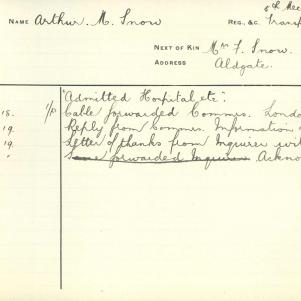 NAME Arthur M. Snow REG. &C.
NEXT OF KIN Mrs F. Snow.
ADDRESS Aldgate.
"Admitted Hospital, etc".
Cable forwarded Commrs. Londo
19. Reply from Commrs. Information
19. Letter of thanks from Inquirer wit
" Same forwarded Inquirer Ackno